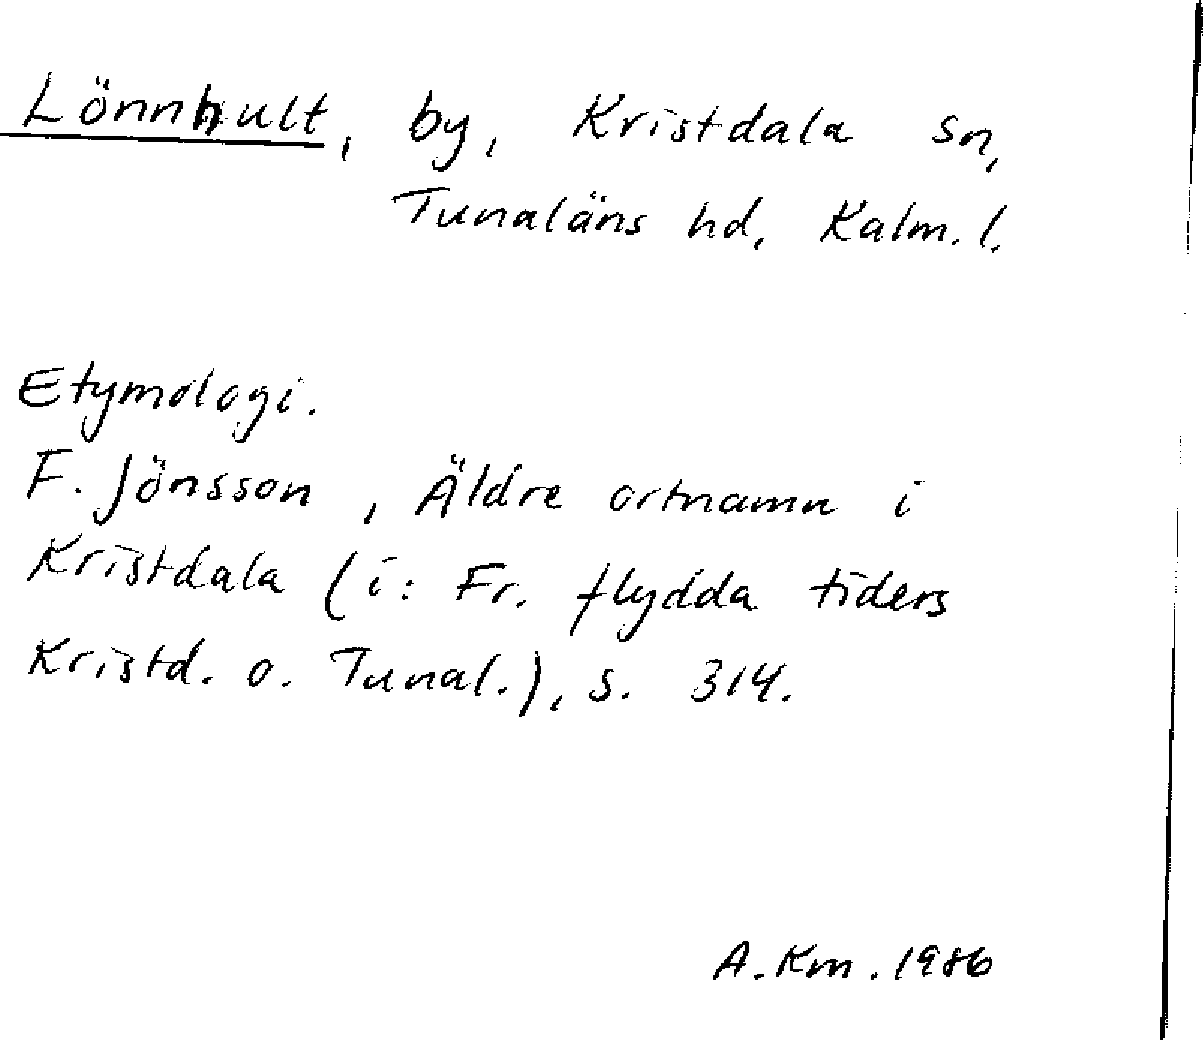 Lönnhult, by, Kristdala sn,
Tunaläns hd, Kalm. l.
Etymologi.
F. Jönsson, Äldre ortnamn i
Kristdala (i: Fr. flydda tiders
Kristd. o. Tunal.), s. 314.
A. Km. 1986